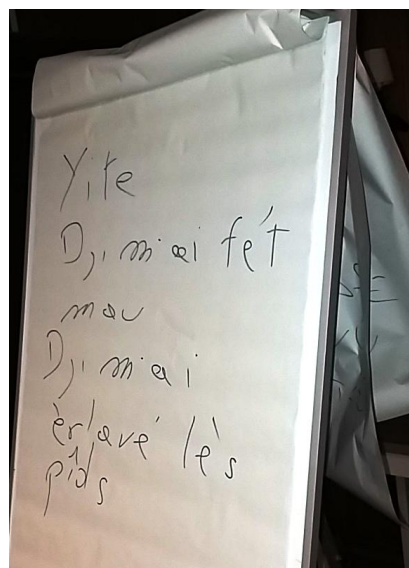 Yite
Dj, m'ai fé't
mau
Dj, m'ai
èrlavé lès
pîds